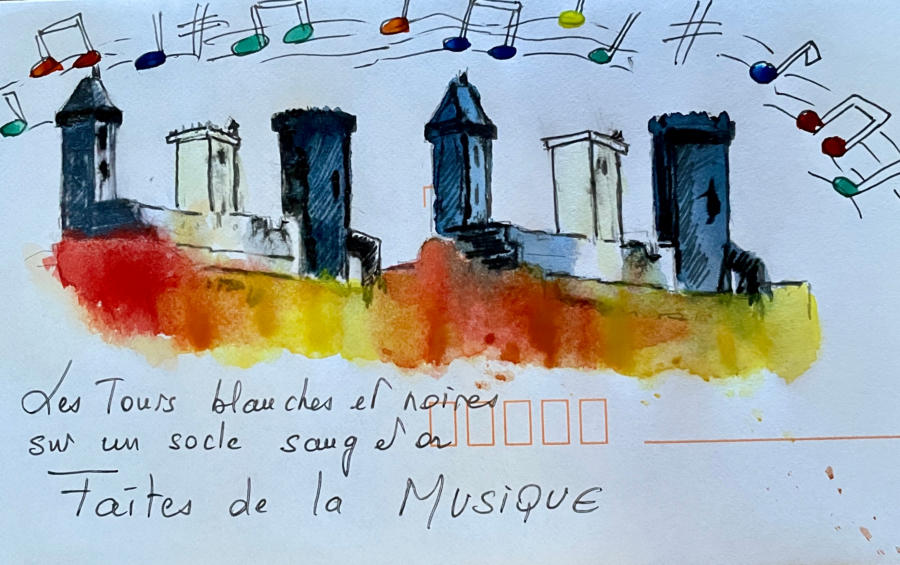 Les Tours blanches et noires
sur un socle sang et or
Faîtes de la MUSIQUE